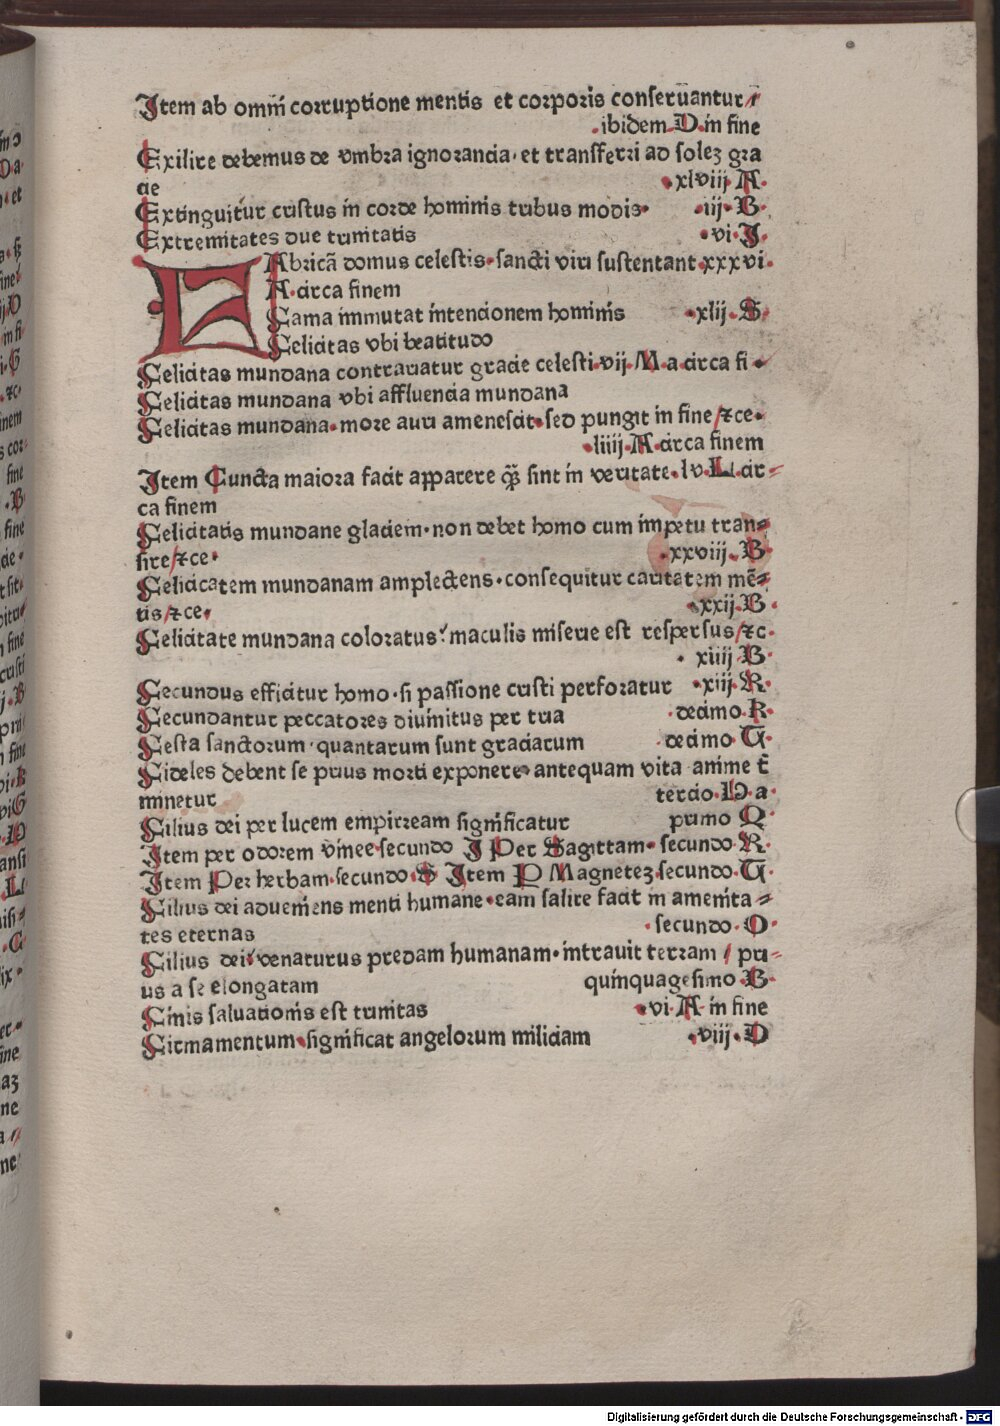 Item ab omni corruptione mentis et corporis conseruantur /
.ibidem.D.in fine
Exilire debemus de vmbra ignorancia. et transferri ad solez gra
cie .xlviij A.
Extinguitur cristus in corde hominis tribus modis. .iij.B.
Extremitates due trinitatis .vi.J.
FAbricā domus celestis.sancti viri sustentant.xxxvi.
A.circa finem
Fama immutat intencionem hominis .xlij.S.
Felicitas vbi beatitudo
Felicitas mundana contrariatur gracie celesti.vij.M.a.circa fi.
Felicitas mundana vbi affluencia mundana
Felicitas mundana.more auri amenescit.sed pungit in fine/ꝛce.
.liiij.A.circa finem
Item Cuncta maiora facit apparere qᷓ sint in veritate.lv.L.cir-
ca finem
Felicitatis mundane glaciem.non debet homo cum impetu tran=
sire/ꝛce. .xxviij.B.
Felicicatem mundanam amplectens.consequitur cautatem mē=
tis/ꝛce. .xxij.B.
Felicitate mundana coloratus.maculis miserie est respersus/ꝛc.
. xiiij B.
Fecundus efficitur homo.si passione cristi perforatur .xiij.R.
Fecundantur peccatores diuinitus per tria .decimo.K.
Festa sanctorum.quantarum sunt graciarum .decimo U.
Fideles debent se prius morti exponere.antequam vita anime t̄
minetur tercio.D.a.
Filius dei per lucem empirream significatur primo Q
Item per odorem vinee.secundo J Per Sagittam.secundo.R.
Item Per herbam.secundo.S Item P Magnetez.secundo.U.
Filius dei adueniens menti humane.eam salire facit in amenita=
tes eternas .secundo.O.
Filius dei.venaturus predam humanam.intrauit terram / pri-
us a se elongatam quinquagesimo B.
Finis saluationis est trinitas .vi.A.in fine
Firmamentum.significat angelorum miliciam .viij.D
Digitalisierung gefördert durch die Deutsche Forschungsgemeinschaft - DFG